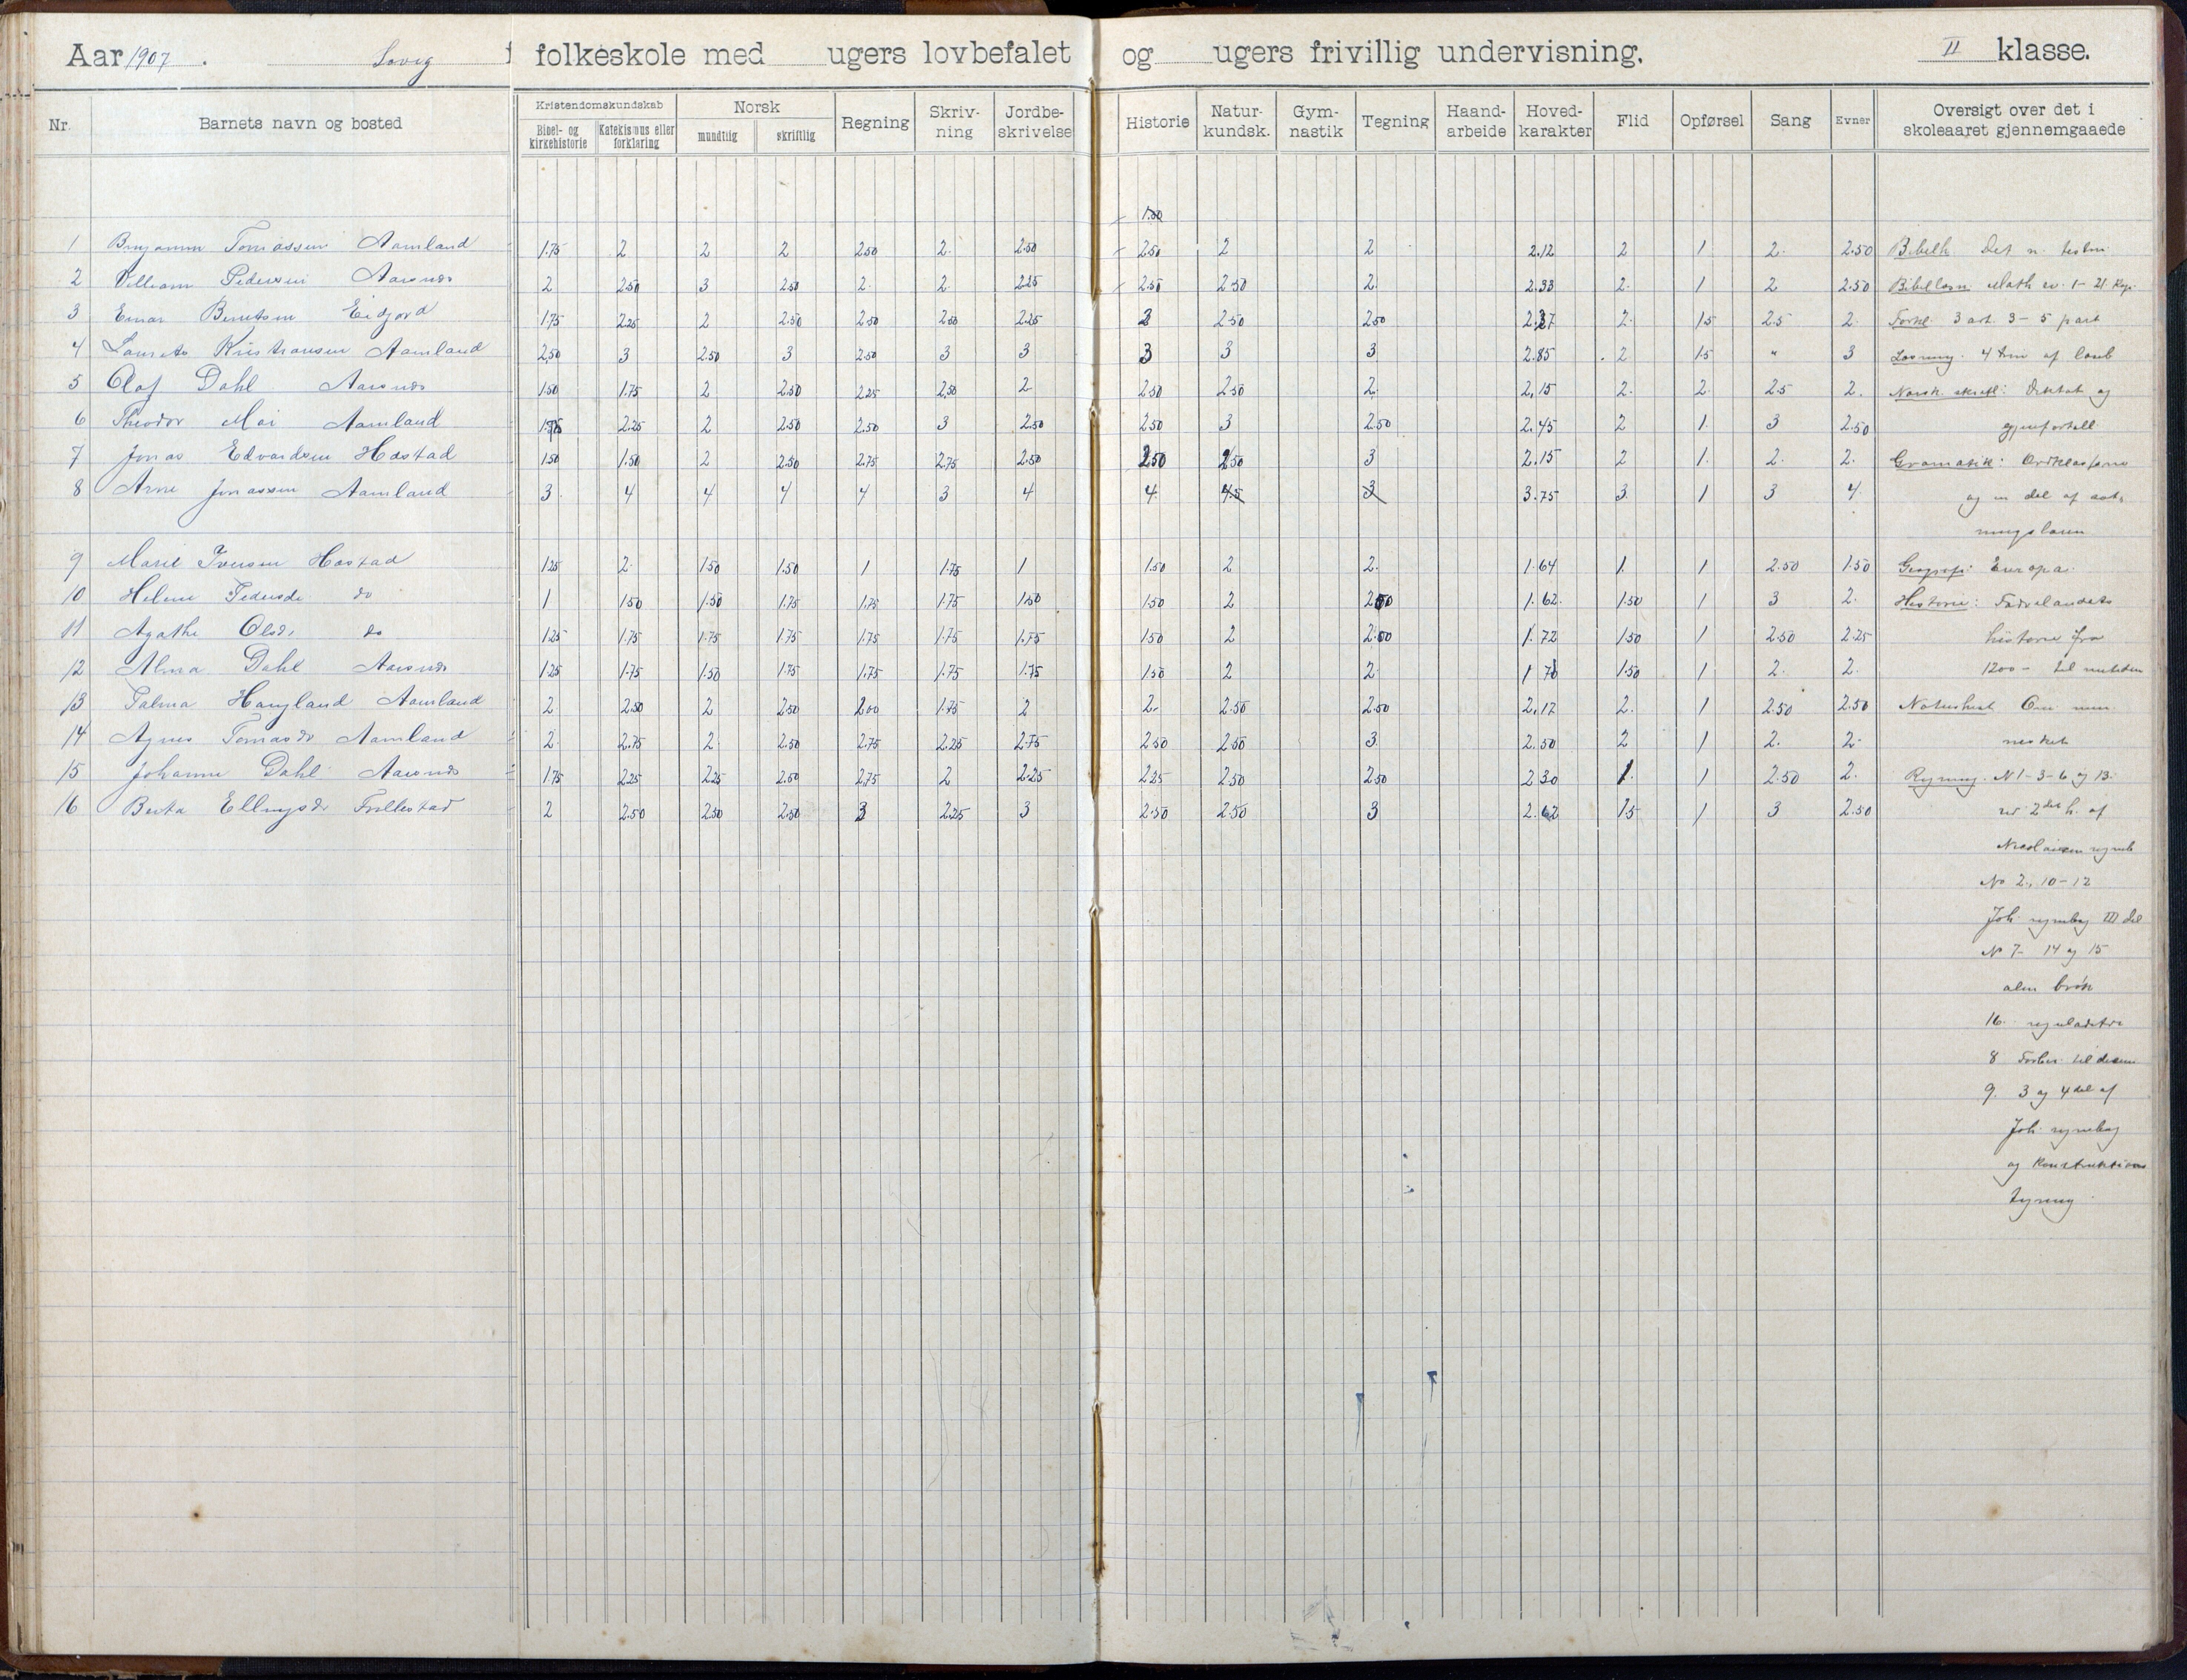 Aar 1907. Lovig folkeskole med ugers lovbefalet og ugers frivillig undervisning. II klasse.
Nr. Barnets navn og bosted Kristendomskundskab Norsk Regning Skriv- Jordbe- Historie Natur- Gym- Tegning Haand- Hoved- Flid Opførsel Sang Evner Oversigt over det i
Bibel- og Katekismus eller mundtlig skriftlig ning skrivelse kundsk. nastik arbeide karakter skoleaaret gjennemgaaede
kirkehistorie forklaring
1.50
1 Benjamin Tomassen Aamland 1.75 2 2 2 2.50 2. 2.50 2.50 2 2 2.12 2 1 2. 2.50 Bibelh Det n. testm
2 Villiam Pedersen Aarsnes 2 2.50 3 2.50 2. 2. 2.25 2.50 2.50 2. 2.33 2. 1 2 2.50 Math ev. 1-21. Kap.
3 Einar Berntsen Eidjord 1.75 2.25 2 2.50 2.50 2.50 2.25 3 2.50 2.50 2.37 2. 1.5 2.5 2. Forkl. 3 art. 3-5 part
4 Kristiansen Aamland 2,50 3 2.50 3 2.50 3 3 3 3 3 2.85 2 1.5 " 3 Læsning. 4 af læseb
5 Olaf Dahl Aarsnes 1.50 1.75 2 2.50 2.25 2,50 2 2.50 2.50 2. 2,15 2. 2. 2.5 2. Norsk skriftl: Diktat og
6 Theodor Moi Aamland 1.75 2.25 2 2.50 2.50 3 2.50 2.50 3 2.50 2.45 2 1. 3 2.50 gjenfortell.
7 Jonas Edvardsen Hæstad 1.50 1.50 2 2.50 2.75 2.75 2.50 2.50 2.50 3 2.15 2 1. 2. 2. Gramatik: Ordklasserne
8 Arne Jonassen Aamland 3. 4 4 4 4 3 4 4. 4.5 3 3.75 3. 1 3 4. og en del af sæt-
ningslæren
9 Marie Iversen Hæstad 1.25 2. 1.50 1.50 1 1.75 1 1.50 2 2. 1.64 1. 1 2.50 1.50 Geografi: Europa.
10 Helene Pedersdr do 1 1.50 1.50 1.75 1.75 1.75 1.50 1.50 2 2.50 1.62. 1.50 1 3 2. Historie: Fædrelandets
11 Agathe Olsdr do 1.25 1.75 1.75 1.75 1.75 1.75 1.75 1.50 2 2.50 1.72 1.50 1 2.50 2.25 historie fra
12 Alma Dahl Aarsnes 1.25 1.75 1.50 1.75 1.75 1.75 1.75 1.50 2 2. 1.78 1.50 1 2. 2. 1200- til nutiden
13 Aamland 2 2.50 2 2.50 2.00 1.75 2 2. 2.50 2.50 2.17 2. 1 2.50 2.50 Naturhist. Om men-
14 Agnes Tomasdr Aamland 2. 2.75 2. 2.50 2.75 2.25 2.75 2.50 2.50 3. 2.50 2 1 2. 2. nesket
15 Johanne Dahl Aarsnes 1.75 2.25 2.25 2.50 2.75 2 2.25 2.25 2.50 2.50 2.30 1. 1 2.50 2. Regning. N 1-3-6 og 13.
16 Berta Ellingsdr 2 2.50 2.50 2.50 3 2.25 3 2.50 2.50 3 2.62 1.5 1 3 2.50 2det h. af
Nicolaisen regneb
No 2., 10-12
Joh. regnebog III del
No 7- 14 og 15
alm brøk
16. reguladetri
8 til
9. 3 og 4 del af
Joh. regnebog
og Konstruktions
tegning.